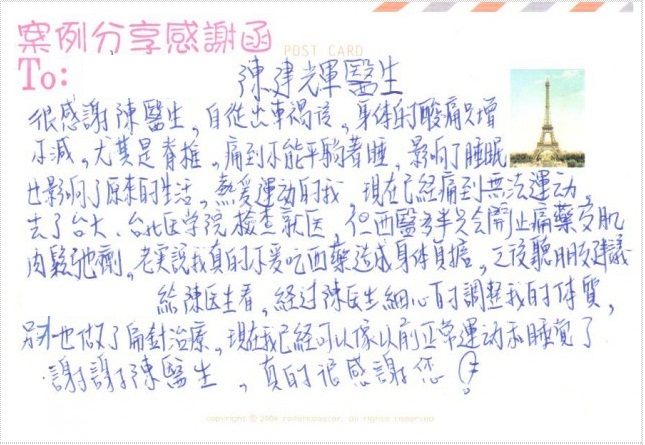 案例分享感謝函
POST CARD
To:
陳建輝醫生
很感謝陳醫生,自從出車禍后,身体的酸痛只增
不減,尤其是脊椎,痛到不能平躺著睡,影响了睡眠
也影响了原來的生活,熱愛運动的我,現在已經痛到無法運动,
去了台大、台北医学院檢查就医,但西醫多半只会開止痛藥及肌
肉鬆弛劑,老實說我真的不爱吃西藥造成身体負擔,之後聽朋友建議
給陳医生看,經过陳医生細心的調整我的体質,
另外也做了扁針治療,現在我已經可以像以前正常運动和睡觉了
謝謝陳醫生,真的很感謝您!